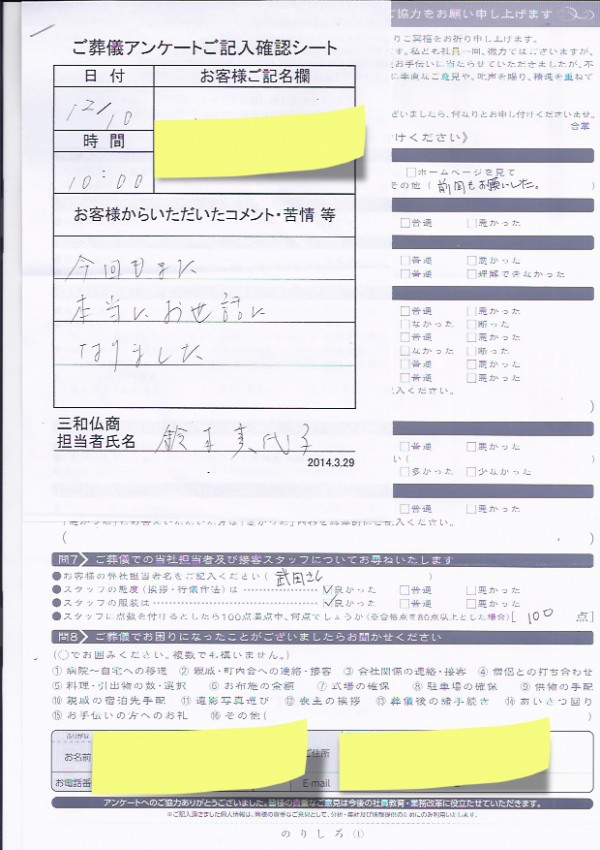 ご協力をお願い申し上げます
ご葬儀アンケートご記入確認シート
日 付
お客様ご記名欄
12/10
時 間
10:00
お客様からいただいたコメント・苦情 等
今回もまた
本当に お世話に
なりました
三和仏商
担当者氏名
2014.3.29
りご冥福をお祈り申し上げます。
す。私ども社員一同、微力ではございますが、
お手伝いに当たらせていただきましたが、不
に率直なご意見や、叱声を賜り、精進を重ねて
ざいましたら、何なりとお申し付けくださいませ。
合掌
けください》
□ホームページを見て
その他 ( 前回もお願いした。
□普通 □悪かった
□普通 □悪かった
□普通 □理解できなかった
□普通 □悪かった
□なかった □断った
□普通 □悪かった
□なかった □断った
□普通 □悪かった
□普通 □悪かった
入ください。
□普通 □悪かった
い(
□多かった □少なかった
□普通 □悪かった
( )
問7 ご葬儀での当社担当者及び接客スタッフについてお尋ねいたします
●お客様の弊社担当者名をご記入ください ( 武田さん )
●スタッフの態度 (挨拶・行儀作法) は ☑良かった □普通 □悪かった
●スタッフの服装は ☑良かった □普通 □悪かった
●スタッフに点数を付けるとしたら100点満点中、何点でしょうか (※合格点を80点以上とした場合) [ 100 点]
問8 ご葬儀でお困りになったことがございましたらお聞かせください
(○でお囲みください。複数でも構いません。)
①病院〜自宅への移送 ②親戚・町内会への連絡・接客 ③会社関係の連絡・接客 ④僧侶との打ち合わせ
⑤料理・引出物の数・選択 ⑥お布施の金額 ⑦式場の確保 ⑧駐車場の確保 ⑨供物の手配
⑩親戚の宿泊先手配 ⑪遺影写真選び ⑫喪主の挨拶 ⑬葬儀後の諸手続き ⑭あいさつ回り
⑮お手伝いの方へのお礼 ⑯その他( )
ふりがな
お名前
ご住所
お電話番
E-mail
アンケートへのご協力ありがとうございました。皆様の貴重なご意見は今後の社員教育・業務改革に役立たせていただきます。
のりしろ①